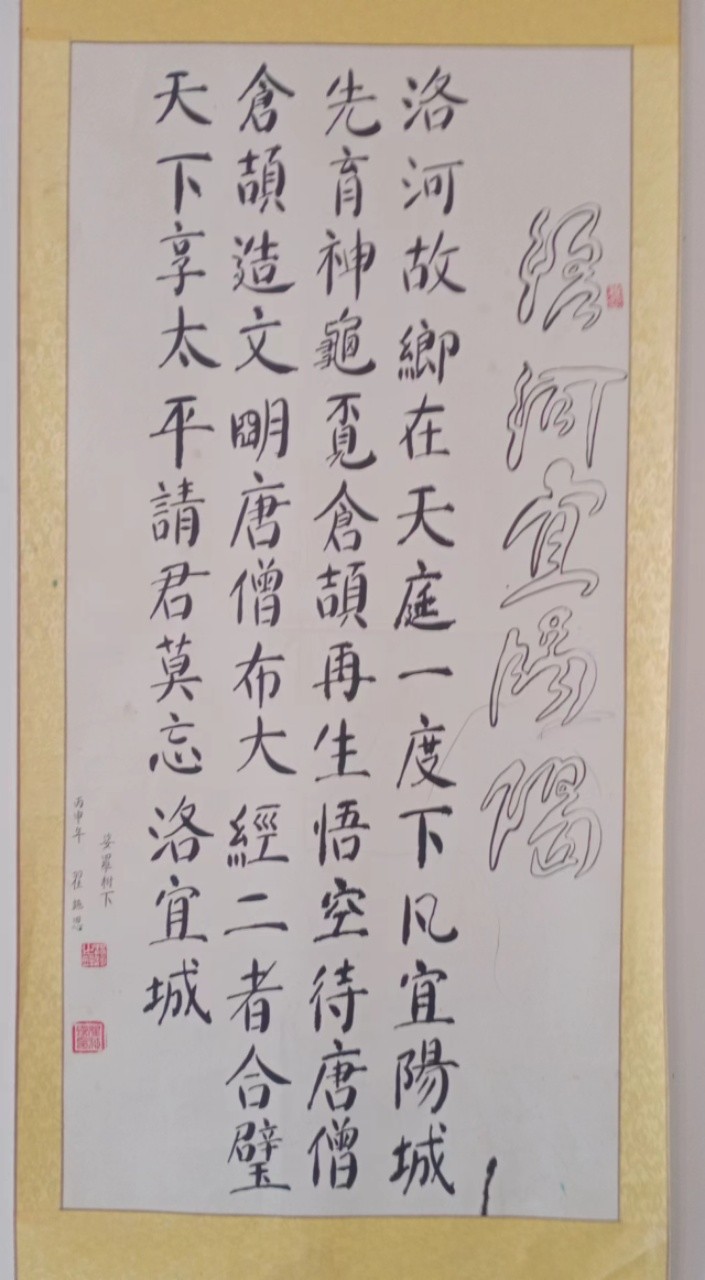 洛河宜陽
洛河故鄉在天庭一度下凡宜陽城
先育神龜覔倉頡再生悟空待唐僧
倉頡造文朙唐僧布大經二者合璧
天下享太平請君莫忘洛宜城
羅樹下
丙申年 翟